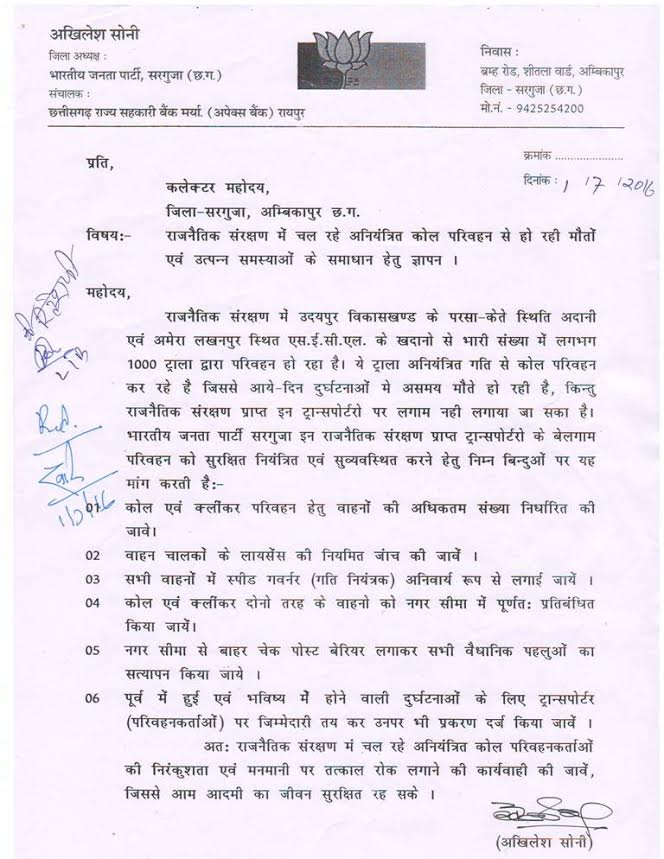 अखिलेश सोनी
जिला अध्यक्ष :
भारतीय जनता पार्टी, सरगुजा (छ.ग.)
संचालक :
छत्तीसगढ़ राज्य सहकारी बैंक मर्या. (अपेक्स बैंक) रायपुर
निवास :
ब्रम्ह रोड, शीतला वार्ड, अम्बिकापुर
जिला - सरगुजा (छ.ग.)
मो.नं. - 9425254200
क्रमांक .......................
दिनांक : 1 17 12016
प्रति,
कलेक्टर महोदय,
जिला-सरगुजा, अम्बिकापुर छ.ग.
विषय:- राजनैतिक संरक्षण में चल रहे अनियंत्रित कोल परिवहन से हो रही मौतों
एवं उत्पन्न समस्याओं के समाधान हेतु ज्ञापन ।
महोदय,
राजनैतिक संरक्षण में उदयपुर विकासखण्ड के परसा-केते स्थिति अदानी
एवं अमेरा लखनपुर स्थित एस.ई.सी.एल. के खदानो से भारी संख्या में लगभग
1000 ट्राला द्वारा परिवहन हो रहा है। ये ट्राला अनियंत्रित गति से कोल परिवहन
कर रहे है जिससे आये-दिन दुर्घटनाओं मे असमय मौते हो रही है, किन्तु
राजनैतिक संरक्षण प्राप्त इन ट्रान्सपोर्टरो पर लगाम नही लगाया जा सका है।
भारतीय जनता पार्टी सरगुजा इन राजनैतिक संरक्षण प्राप्त ट्रान्सपोर्टरो के बेलगाम
परिवहन को सुरक्षित नियंत्रित एवं सुव्यवस्थित करने हेतु निम्न बिन्दुओं पर यह
मांग करती है:-
01 कोल एवं क्लींकर परिवहन हेतु वाहनों की अधिकतम संख्या निर्धारित की
जावे।
02 वाहन चालकों के लायसेंस की नियमित जांच की जावें ।
03 सभी वाहनों में स्पीड गवर्नर (गति नियंत्रक) अनिवार्य रूप से लगाई जायें ।
04 कोल एवं क्लींकर दोनो तरह के वाहनो को नगर सीमा में पूर्णत: प्रतिबंधित
किया जायें।
05 नगर सीमा से बाहर चेक पोस्ट बेरियर लगाकर सभी वैधानिक पहलुओं का
सत्यापन किया जाये ।
06 पूर्व में हुई एवं भविष्य में होने वाली दुर्घटनाओं के लिए ट्रान्सपोर्टर
(परिवहनकर्ताओं) पर जिम्मेदारी तय कर उनपर भी प्रकरण दर्ज किया जावें ।
अत: राजनैतिक संरक्षण मं चल रहे अनियंत्रित कोल परिवहनकर्ताओं
की निरंकुशता एवं मनमानी पर तत्काल रोक लगाने की कार्यवाही की जावें,
जिससे आम आदमी का जीवन सुरक्षित रह सके ।
(अखिलेश सोनी)